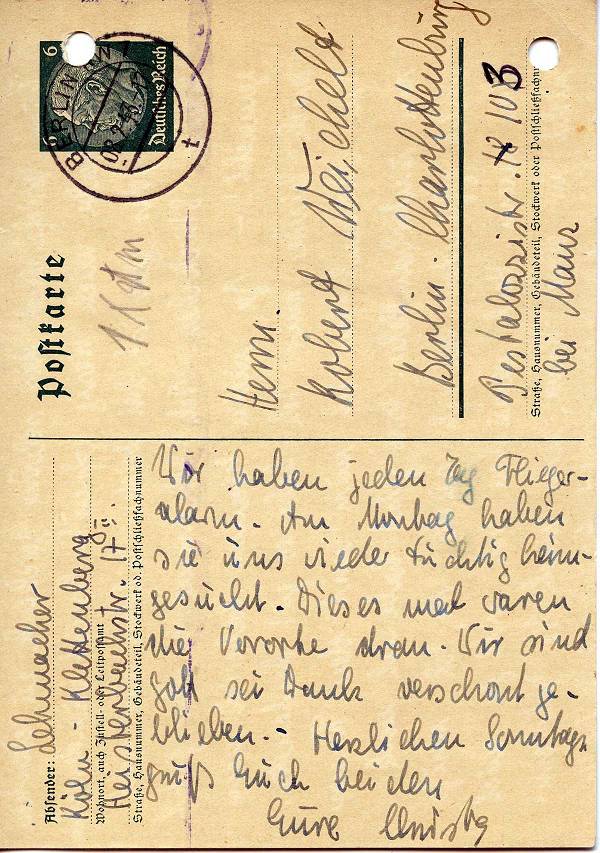 Postkarte
6
6
Deutsches Reich
BERLIN
t
Absender: Lehmacher
Köln - Klettenberg
Wohnort, auch Zustell- oder Leitpostamt
Heisterbachstr. 17 II
Straße, Hausnummer, Gebäudeteil, Stockwerk od. Postschließfachnummer
Wir haben jeden Tag Flieger-
alarm. Am Montag haben
sie uns wieder tüchtig heim-
gesucht. Dieses mal waren
die Vororte dran. Wir sind
gott sei Dank verschont ge-
blieben. - Herzlichen Sonntags
gruß Euch beiden
Eure
Herrn
Robert Weichelt
Berlin - Charlottenburg
Pestalozzistr. 103
Straße, Hausnummer, Gebäudeteil, Stockwerk oder Postschließfachnr
bei Manz